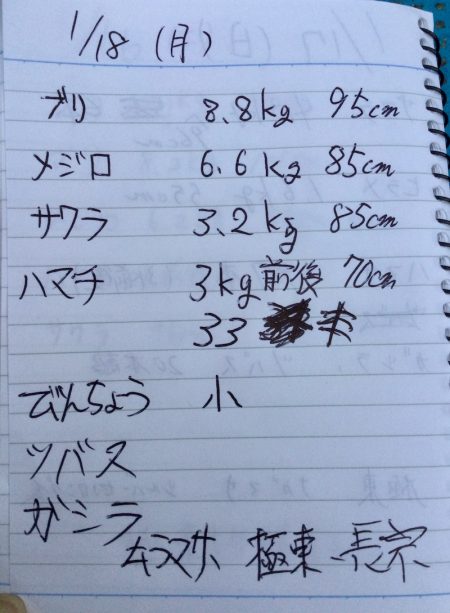 1/18 (月)
ブリ 8.8kg 95cm
メジロ 6.6kg 85cm
サワラ 3.2kg 85cm
ハマチ 3kg前後 70cm
33 本
びんちょう 小
ツバス
ガシラ
極東 長宗